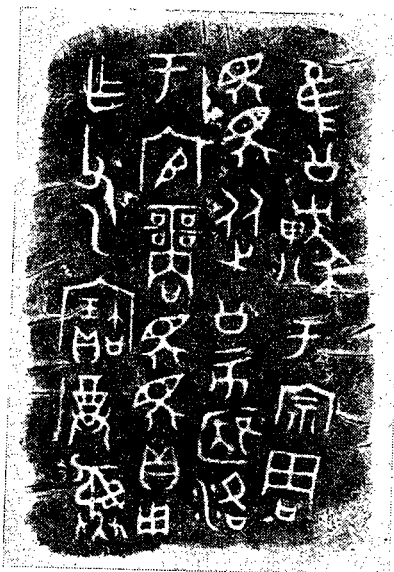 隹公于宗周
從公亥既洛
于官商貝用
乍父乙寶尊彝